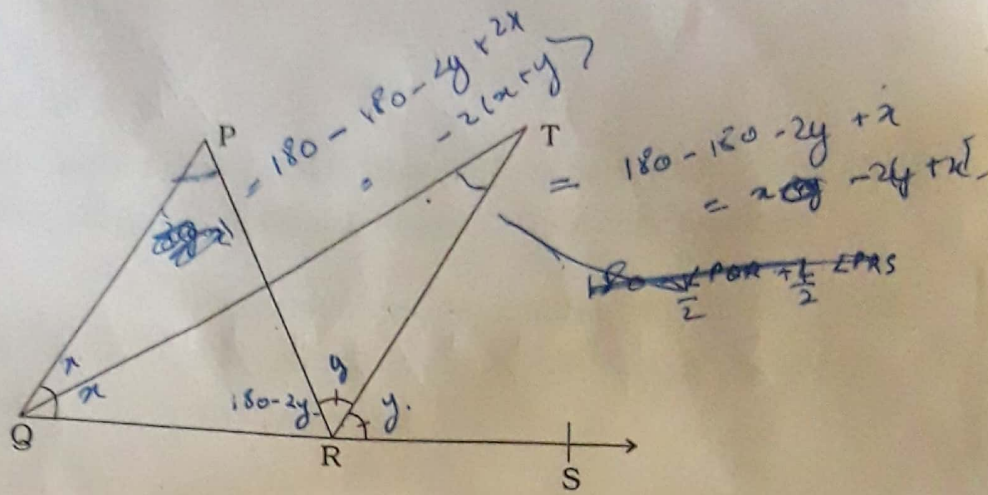 = 180 - 180 - 2y + 2x
- 2(x+y)
P
T
= 180 - 180 - 2y + x
= x - 2y + x
180 - 1/2 PQR + 1/2 ∠PRS
x
x
y
180-2y
y.
Q
R
S